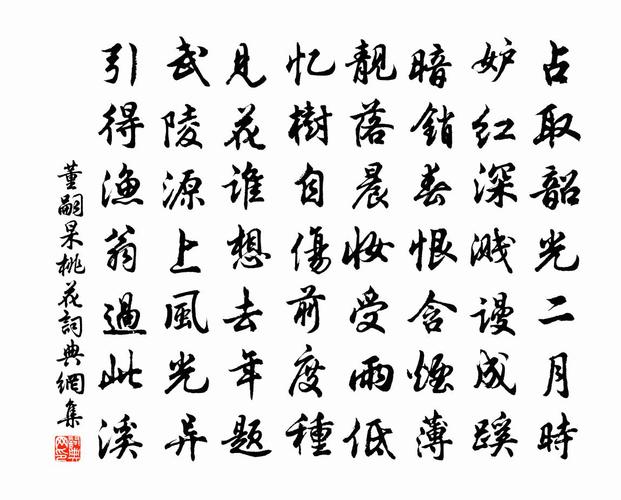 占取韶光二月時
妒红深浅谩成蹊
暗銷春恨含煙薄
靚落晨妝受雨低
忆樹自傷前度種
見花誰想去年題
武陵源上風光异
引得渔翁過此溪
董嗣杲桃花詞典網集